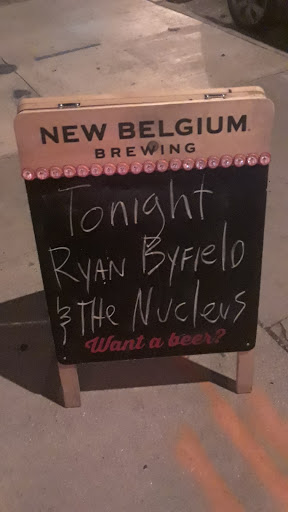 NEW BELGIUM
BREWING
Tonight
RYAN BYFIELD
& THE NUCLEUS
Want a beer?